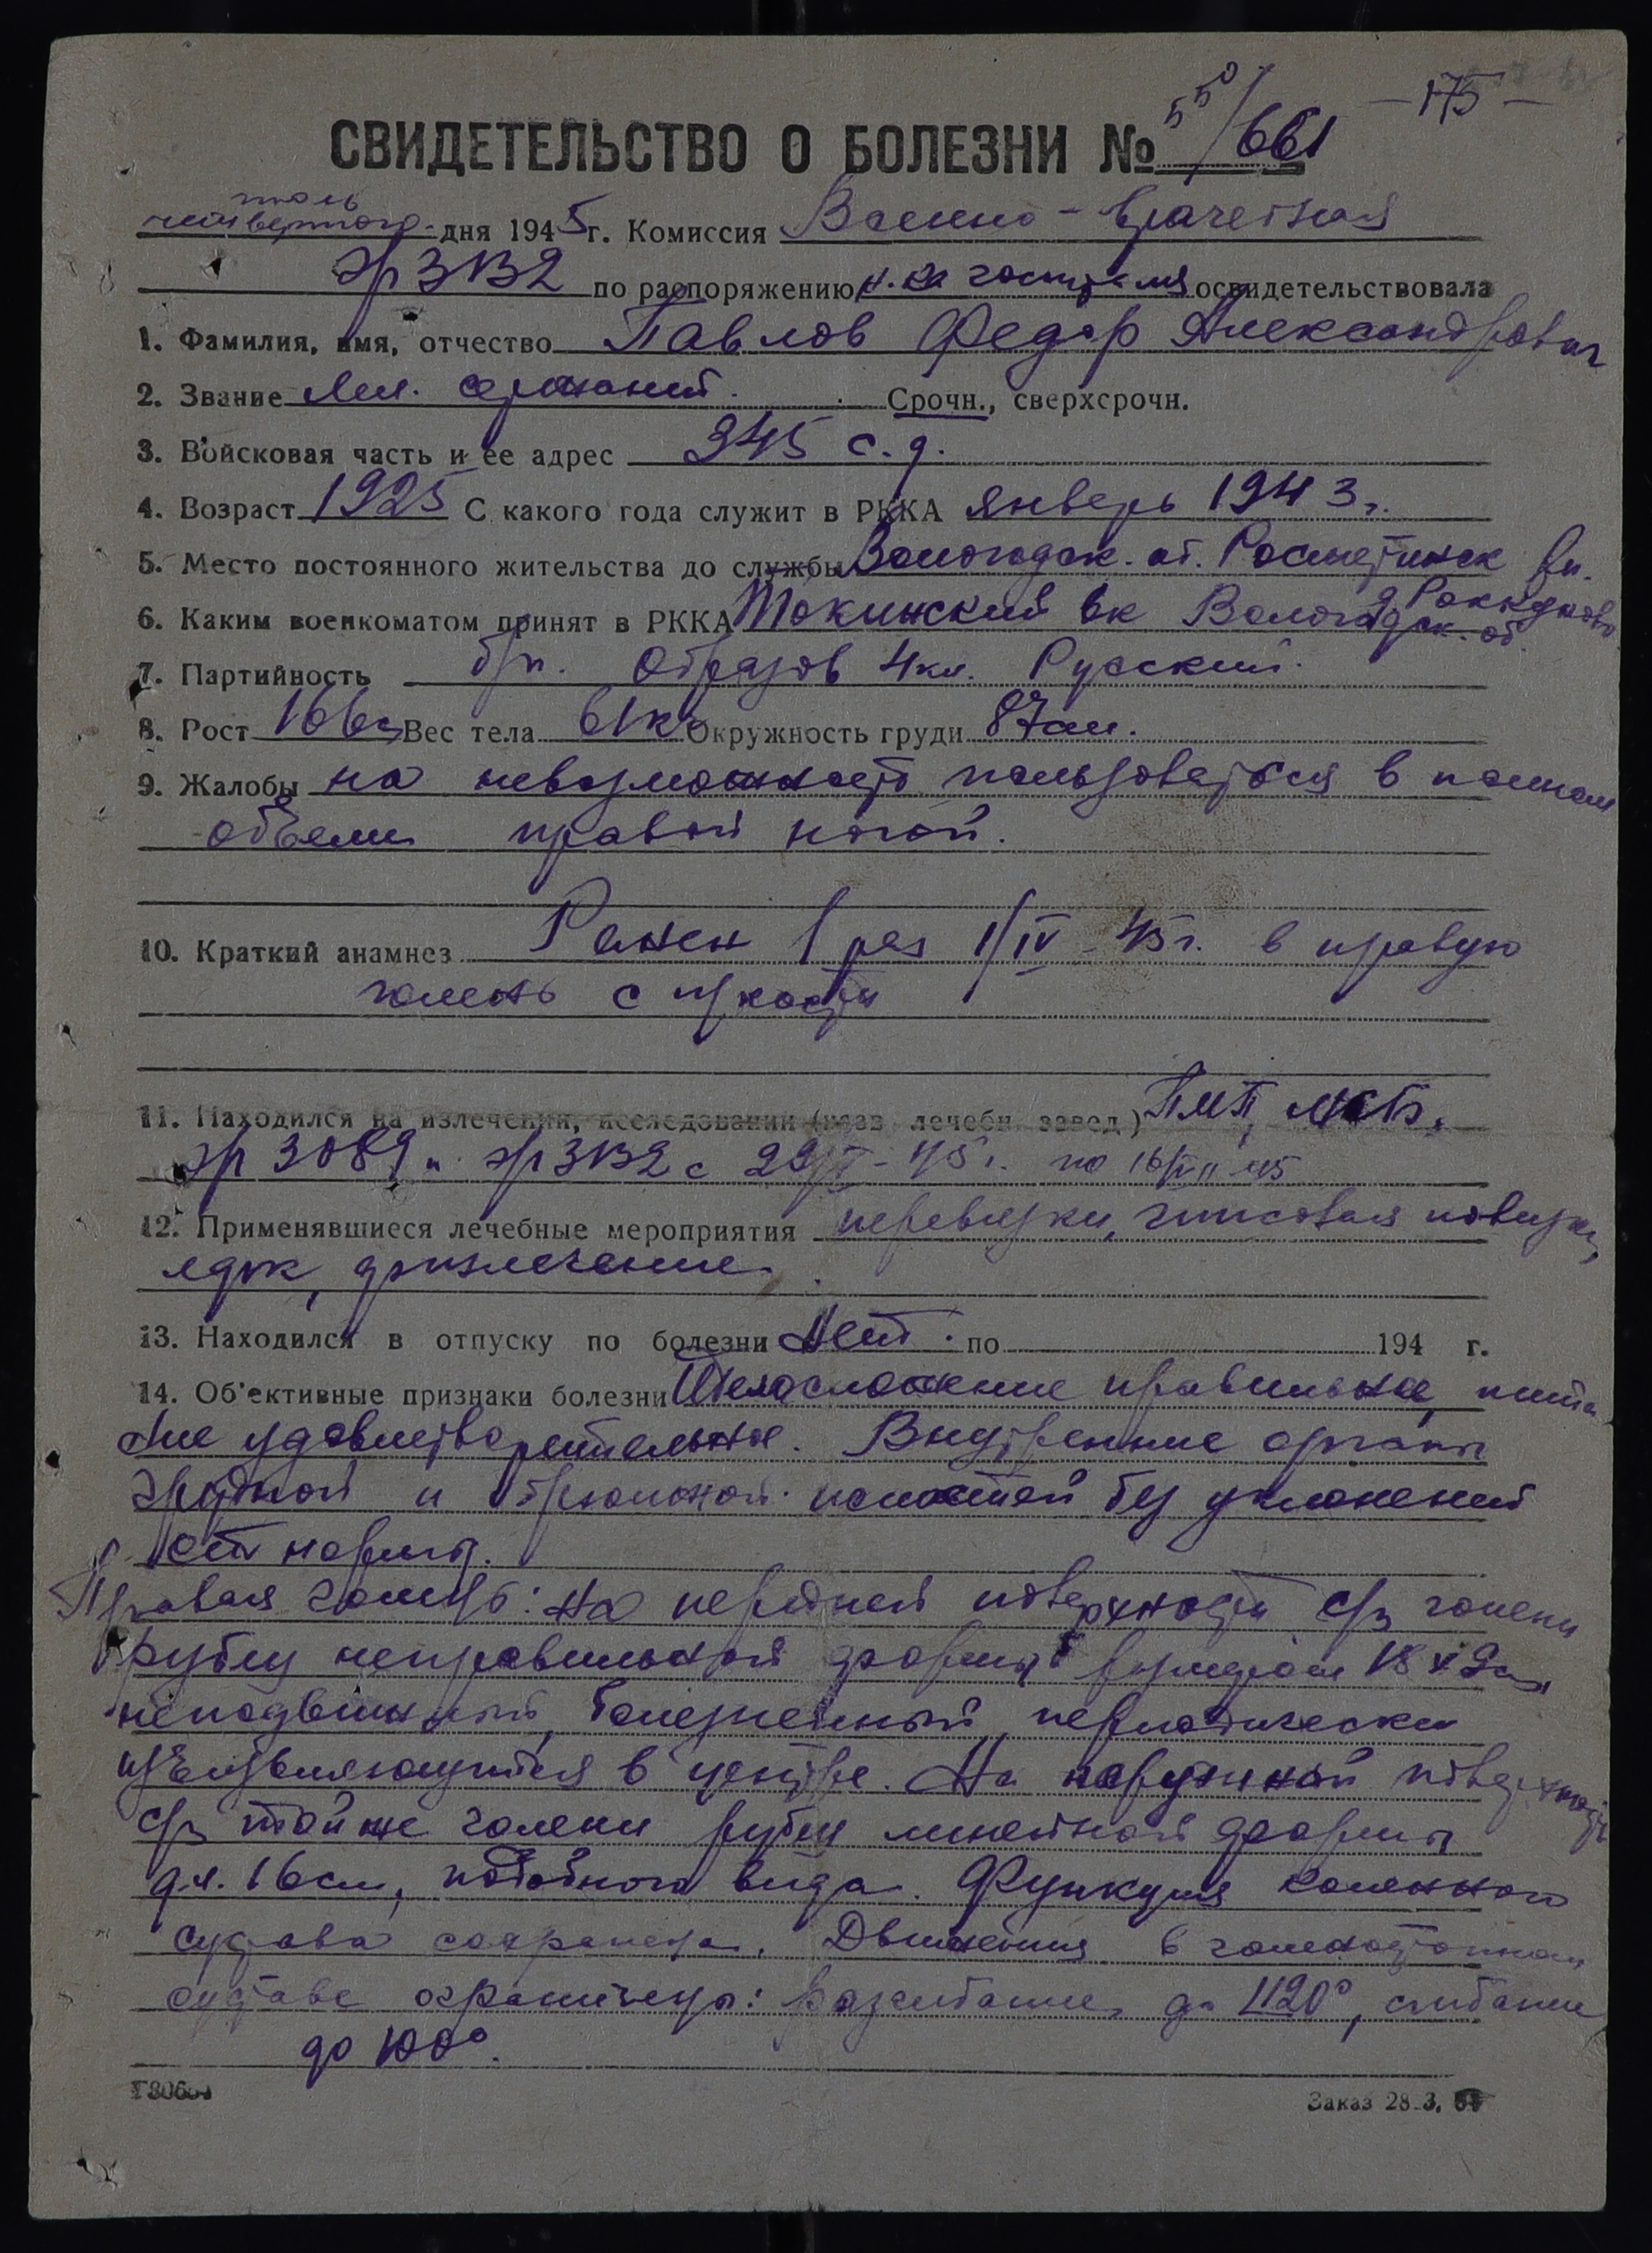 550/661 — 175 —
СВИДЕТЕЛЬСТВО О БОЛЕЗНИ №
июль
четвертого дня 1945 г. Комиссия Военно-врачебная
эг 3132 по распоряжению н-ка госпиталя освидетельствовала
1. Фамилия, имя, отчество Павлов Федор Александрович
2. Звание Мл. сержант. Срочн., сверхсрочн.
3. Войсковая часть и ее адрес 345 с.д.
4. Возраст 1925 С какого года служит в РККА январь 1943 г.
5. Место постоянного жительства до службы Вологодск. об.
6. Каким военкоматом принят в РККА вк Вологодск. об.
7. Партийность б/п. Образов 4 кл. Русский.
8. Рост 166 Вес тела 61 кг Окружность груди 87 см.
9. Жалобы на невозможность пользоваться в полном
объеме правой ногой.
10. Краткий анамнез Ранен 1 раз 1/IV-45 г. в правую
голень с кости
11. Находился на излечении, исследовании (назв. лечебн. завед.) ПМП, МСБ,
эг 3089 и эг 3132 с 29 45 г. по 16/VII-45
12. Применявшиеся лечебные мероприятия перевязки, гипсовая повязка,
физлечение.
13. Находился в отпуску по болезни Нет. по 194 г.
14. Об'ективные признаки болезни Телосложение правильное, пита-
ние удовлетворительное. Внутренние органы
грудной и брюшной полостей без уклонений
от нормы.
Правая голень: на передней поверхности с/з голени
рубец неправильной формы размером 18 х 2 см,
неподвижный, болезненный, периодически
изъязвляющийся в центре. На наружной поверхности
с/з той же голени рубец линейной формы
дл. 16 см, подобного вида. Функция коленного
сустава сохранена. Движения в голеностопном
суставе ограничены: разгибание до 120°, сгибание
до 100°.
Заказ 28-3.